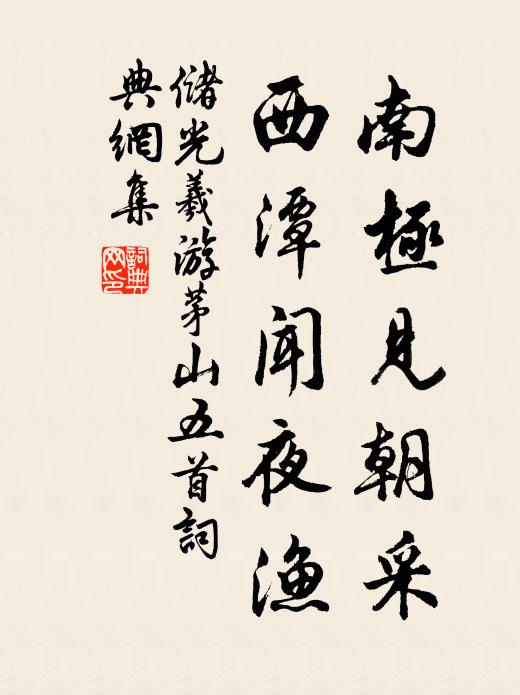 南極見朝采
西潭聞夜漁
儲光羲游茅山五首詞
典網集
詞典網印